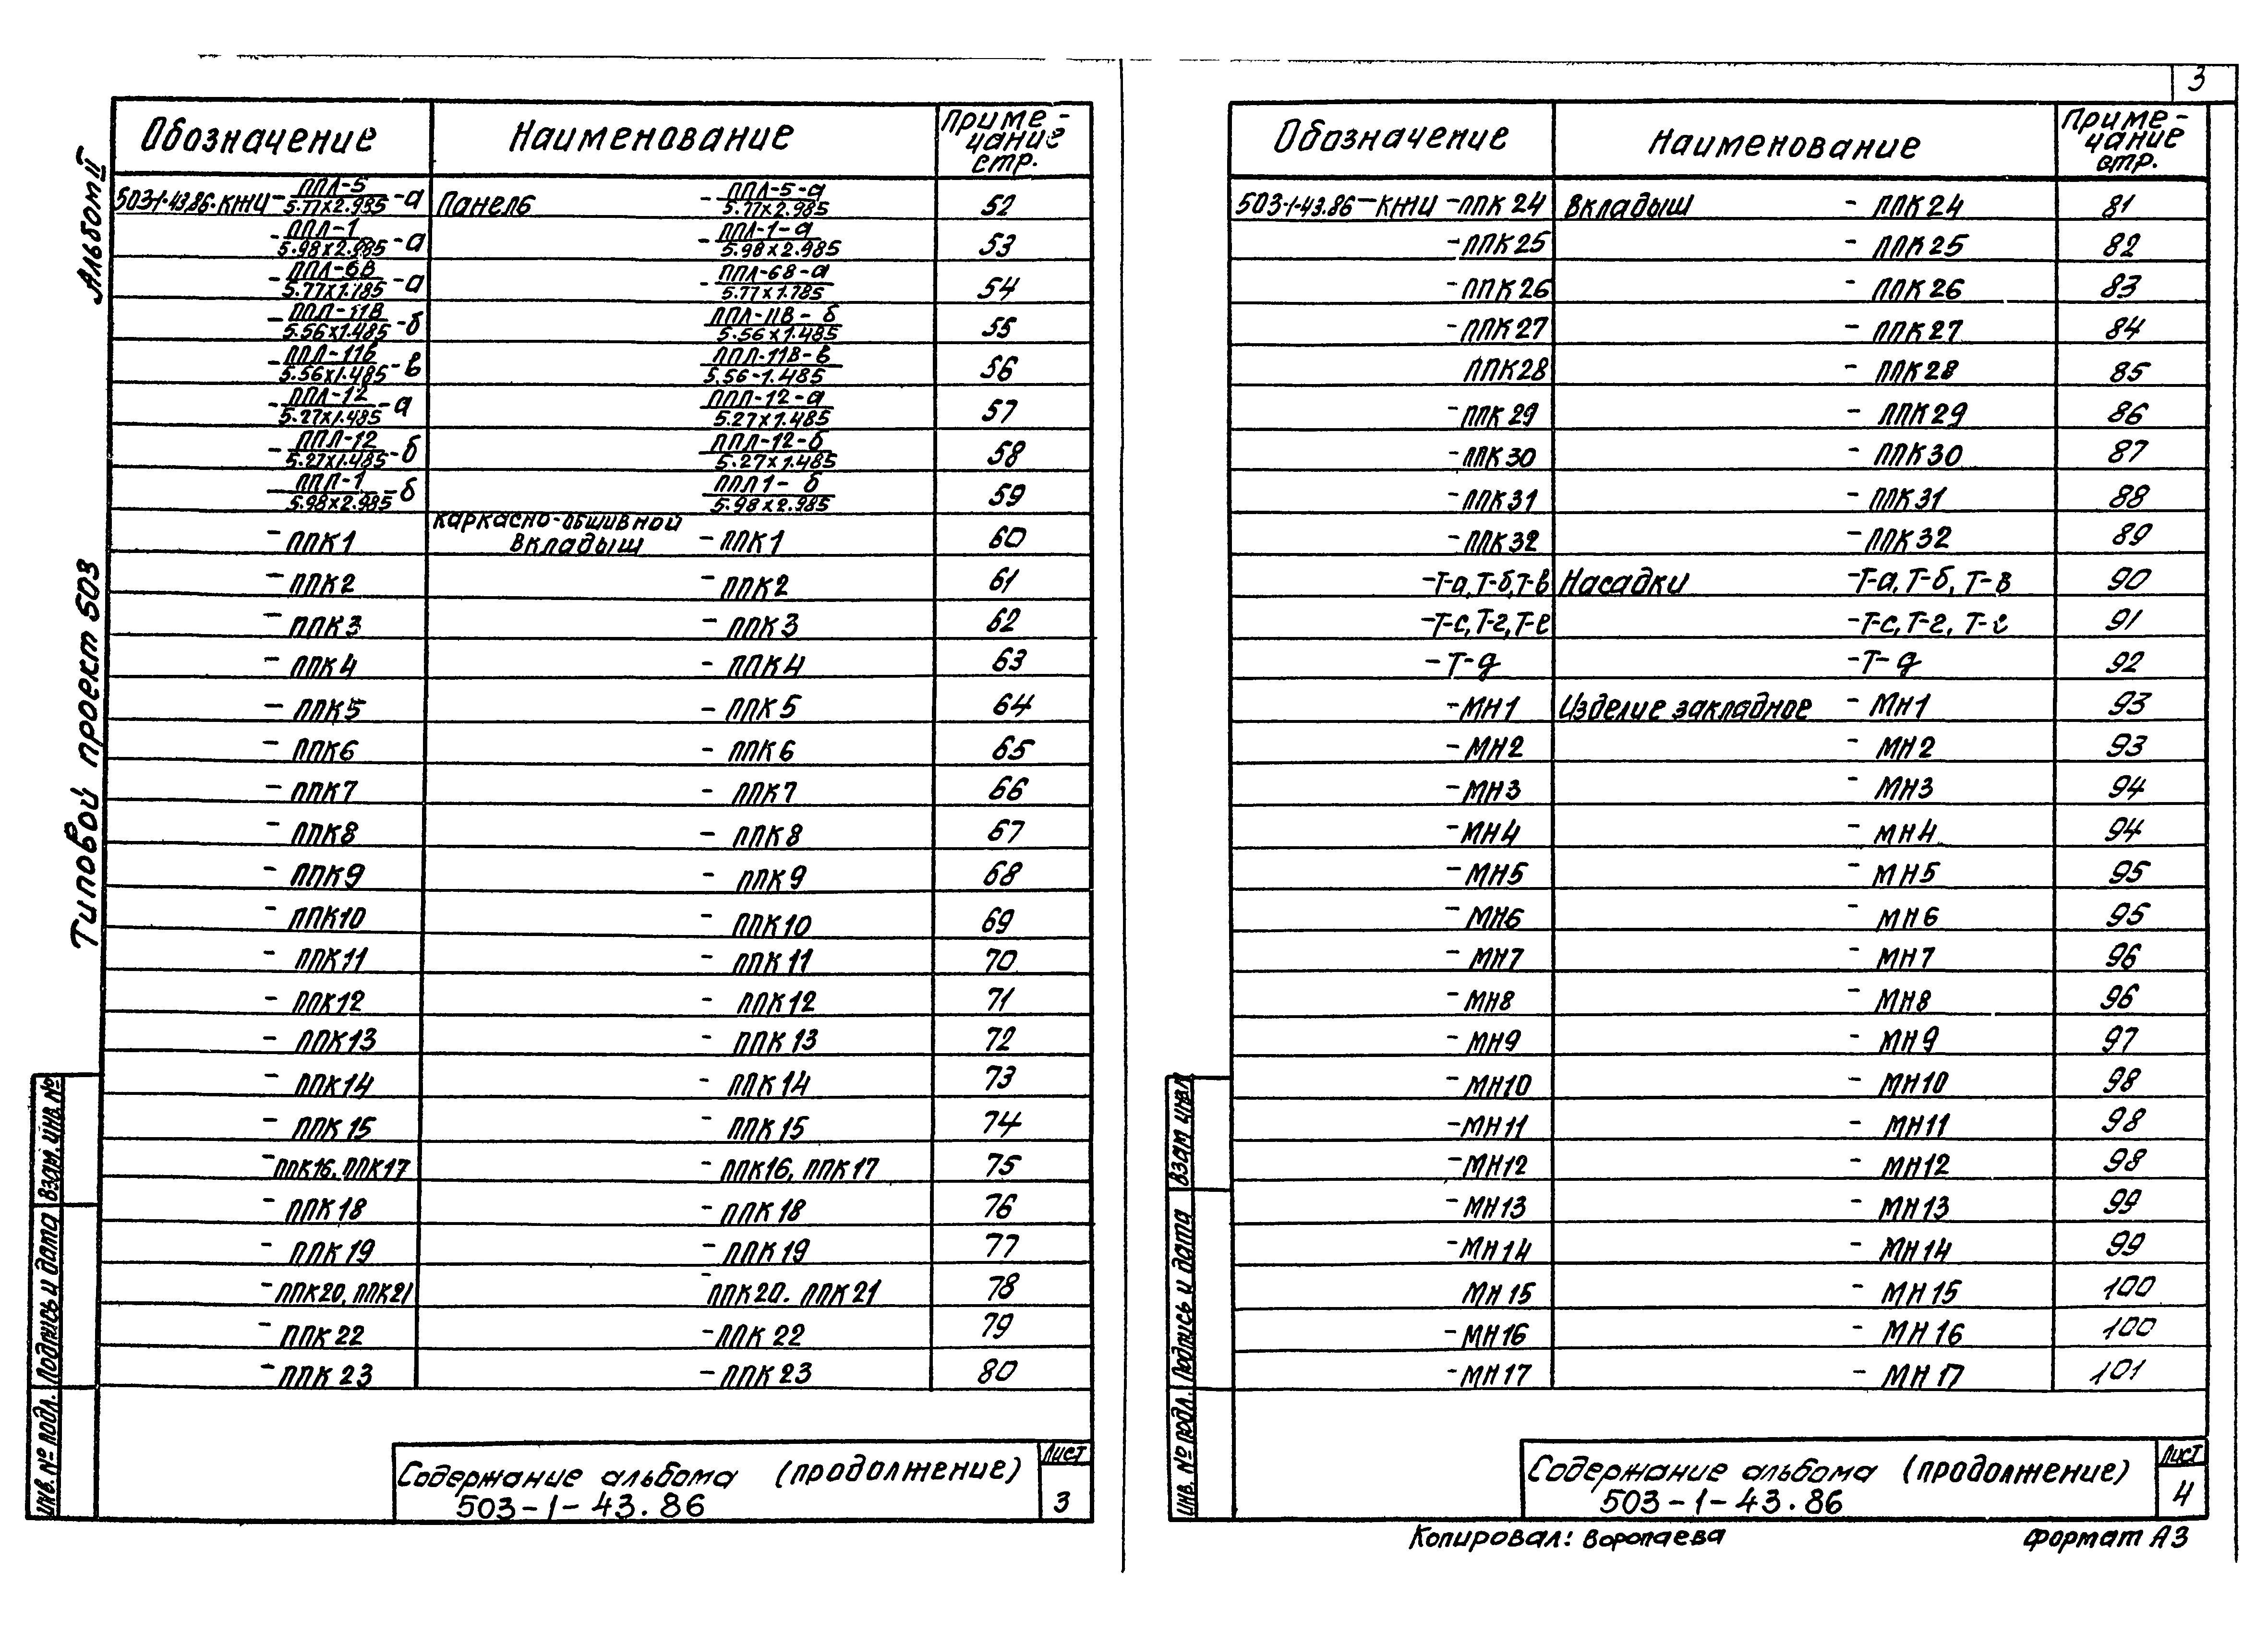 3
Альбом II
Типовой проект 503
Обозначение Наименование Приме-
чание
стр.
503-1-43.86-КЖИ-ППЛ-5/5.77х2.985-а Панель -ППЛ-5-а/5.77х2.985 52
-ППЛ-1/5.98х2.985-а -ППЛ-1-а/5.98х2.985 53
-ППЛ-6В/5.77х1.185-а -ППЛ-6В-а/5.77х1.785 54
-ППЛ-11В/5.56х1.485-б ППЛ-11В-б/5.56х1.485 55
-ППЛ-11В/5.56х1.485-в ППЛ-11В-в/5.56-1.485 56
-ППЛ-12/5.27х1.485-а ППЛ-12-а/5.27х1.485 57
-ППЛ-12/5.27х1.485-б ППЛ-12-б/5.27х1.485 58
-ППЛ-1/5.98х2.985-б ППЛ1-б/5.98х2.985 59
каркасно-обшивной
-ППК1 вкладыш -ППК1 60
-ППК2 -ППК2 61
-ППК3 -ППК3 62
-ППК4 -ППК4 63
-ППК5 -ППК5 64
-ППК6 -ППК6 65
-ППК7 -ППК7 66
-ППК8 -ППК8 67
-ППК9 -ППК9 68
-ППК10 -ППК10 69
-ППК11 -ППК11 70
-ППК12 -ППК12 71
-ППК13 -ППК13 72
-ППК14 -ППК14 73
-ППК15 -ППК15 74
-ППК16, ППК17 -ППК16, ППК17 75
-ППК18 -ППК18 76
-ППК19 -ППК19 77
-ППК20, ППК21 -ППК20. ППК21 78
-ППК22 -ППК22 79
-ППК23 -ППК23 80
Инв. № подл. Подпись и дата Взам. инв. №
Содержание альбома (продолжение)
503-1-43.86
Лист
3
Обозначение Наименование Приме-
чание
стр.
503-1-43.86-КЖИ-ППК24 Вкладыш - ППК24 81
-ППК25 - ППК25 82
-ППК26 - ППК26 83
-ППК27 - ППК27 84
ППК28 - ППК28 85
-ППК29 - ППК29 86
-ППК30 - ППК30 87
-ППК31 - ППК31 88
-ППК32 - ППК32 89
-Т-а, Т-б, Т-в Насадки -Т-а, Т-б, Т-в 90
-Т-с, Т-г, Т-е -Т-с, Т-г, Т-е 91
-Т-д -Т-д 92
-МН1 Изделие закладное - МН1 93
-МН2 - МН2 93
-МН3 - МН3 94
-МН4 - МН4 94
-МН5 - МН5 95
-МН6 - МН6 95
-МН7 - МН7 96
-МН8 - МН8 96
-МН9 - МН9 97
-МН10 - МН10 98
-МН11 - МН11 98
-МН12 - МН12 98
-МН13 - МН13 99
-МН14 - МН14 99
МН15 - МН15 100
-МН16 - МН16 100
-МН17 - МН17 101
Инв. № подл. Подпись и дата Взам
Содержание альбома (продолжение)
503-1-43.86
Лист
4
Копировал: Воропаева Формат А3